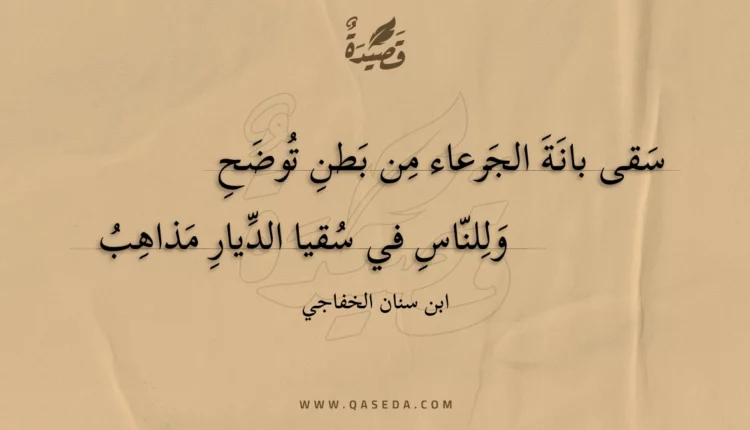 قَصِيدَةٌ
سَقى بانَةَ الجَرعاء مِن بَطنِ تُوضَحِ
وَلِلنّاسِ في سُقيا الدِّيارِ مَذاهِبُ
ابن سنان الخفاجي
WWW.QASEDA.COM